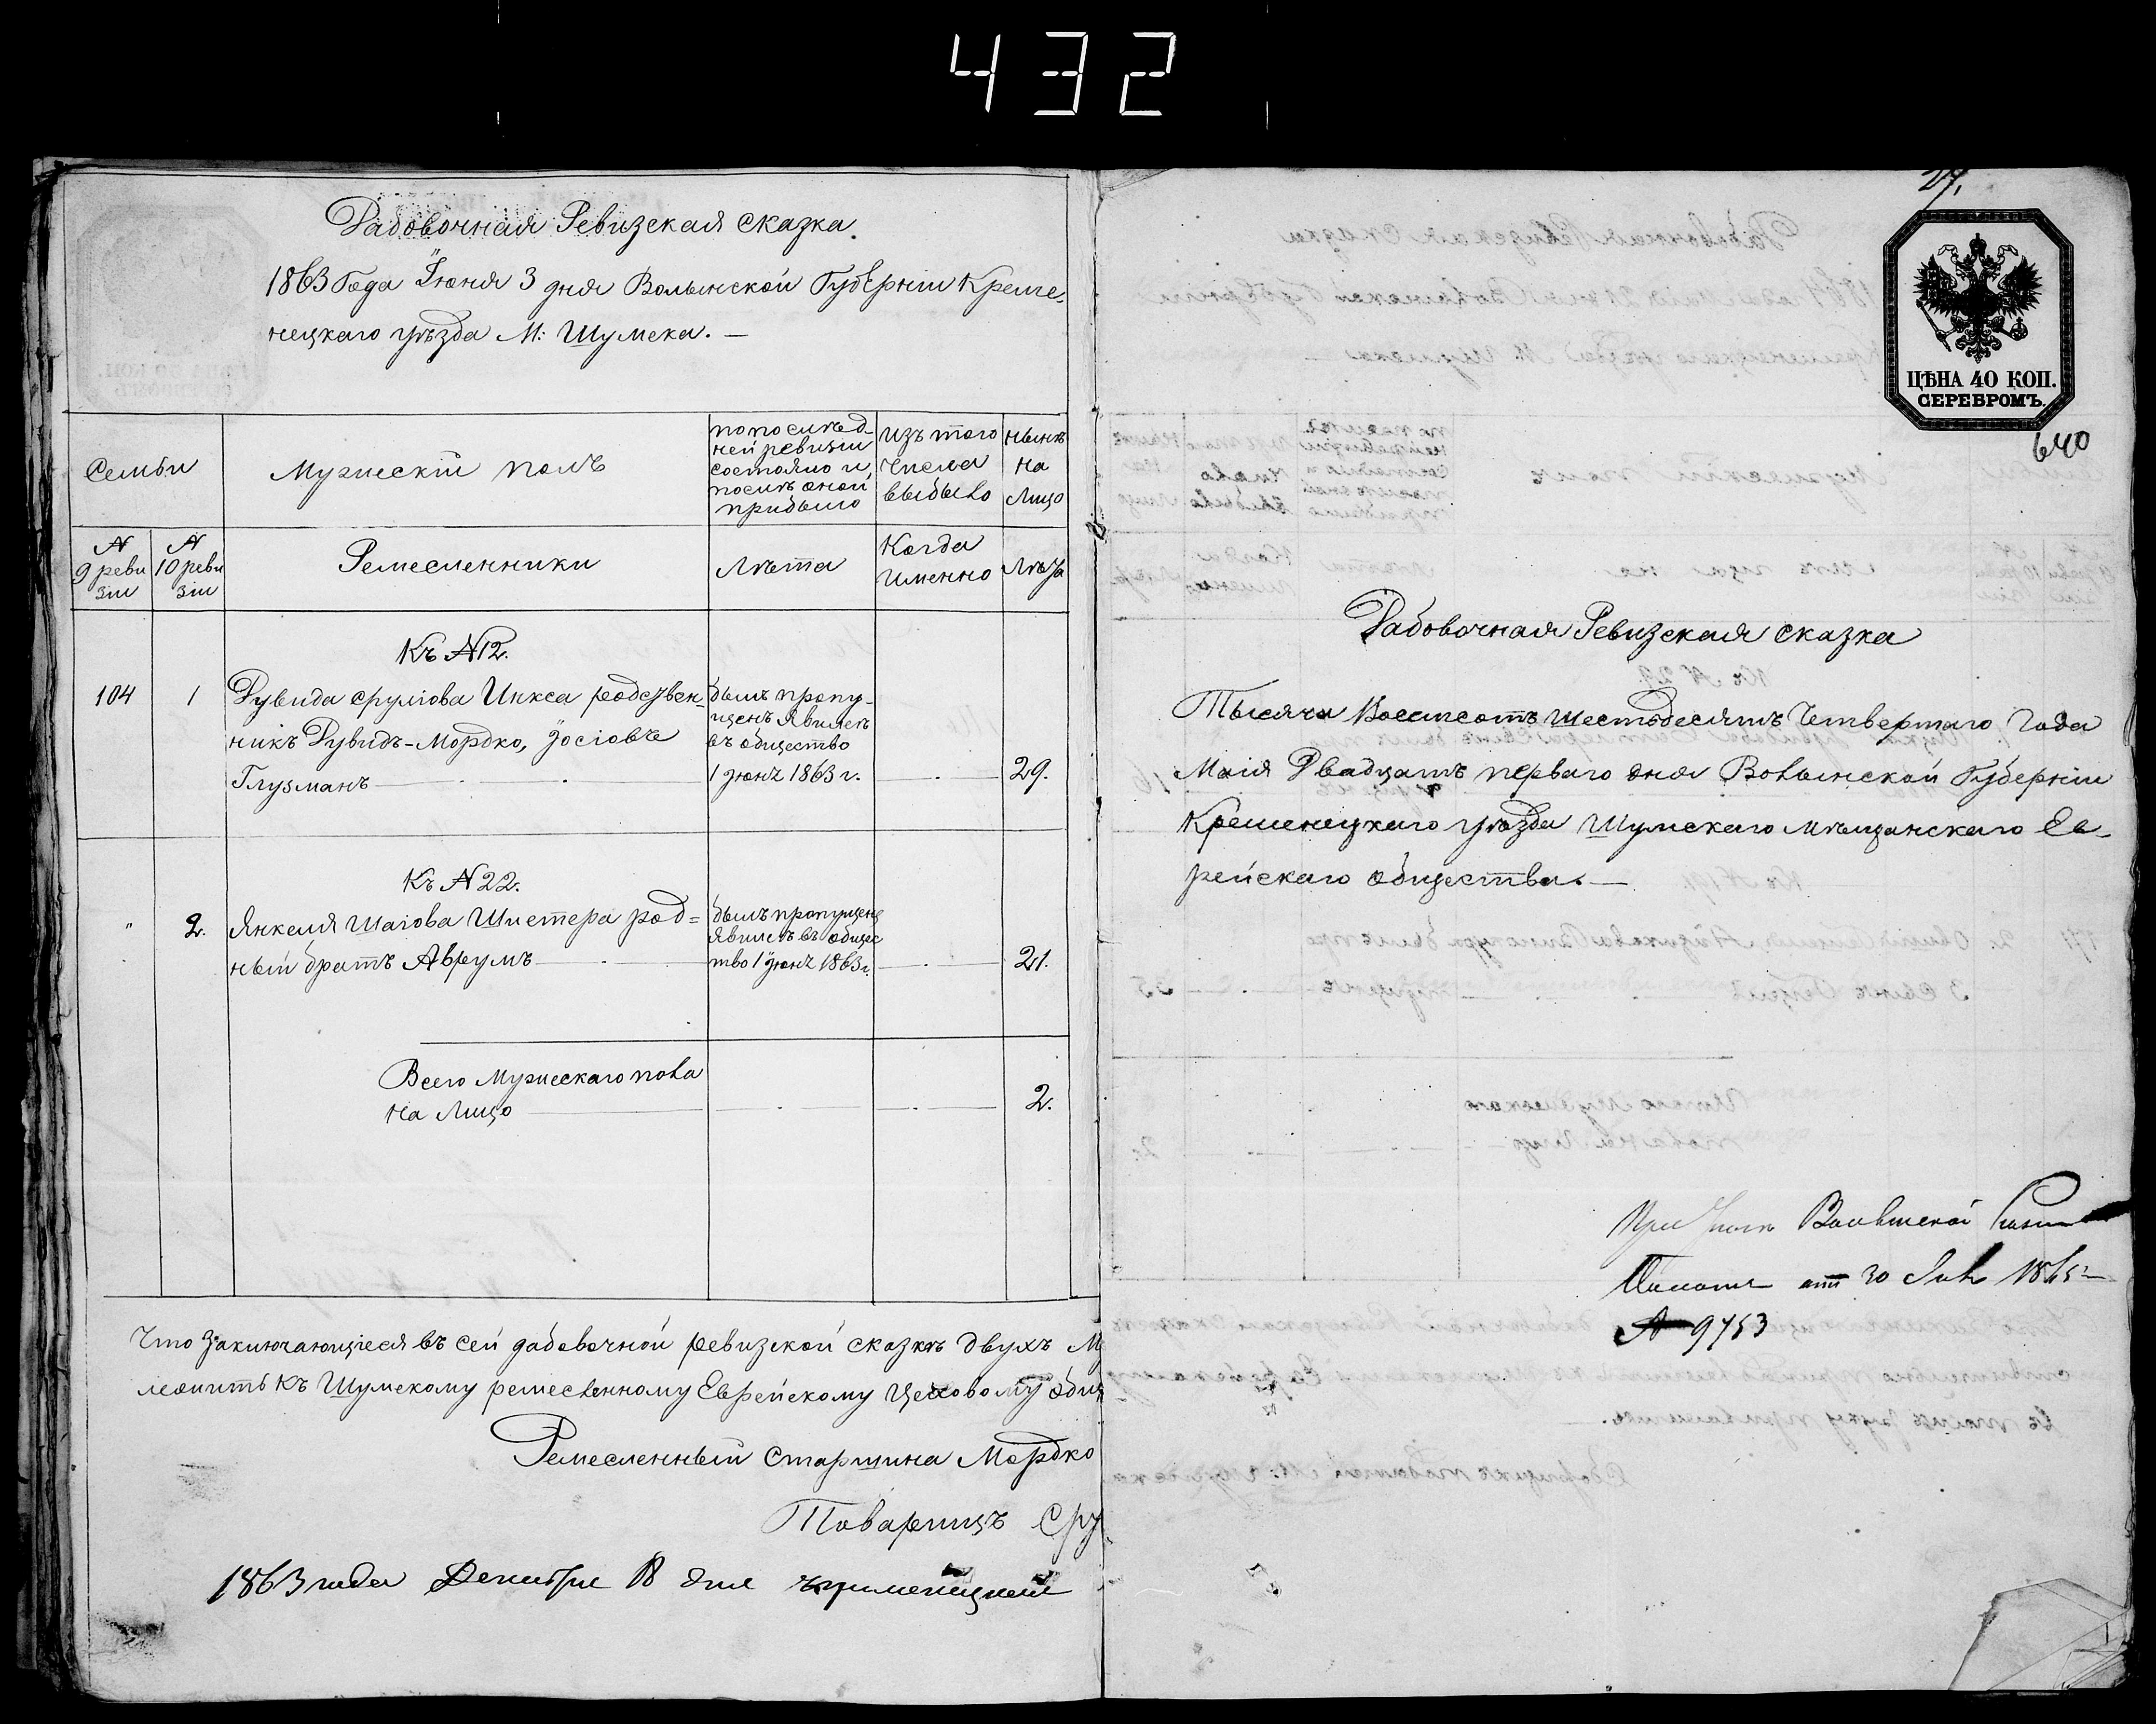 432
Дабовочная Ревизская сказка.
1863 Года Іюня 3 дня Волынской Губерніи Креме-
нецкаго уѣзда М: Шумска. —
Семьи
Мужескій полъ
по послѣд-
ней ревизіи
состояло и
послѣ оной
прибыло
изъ того
числа
выбыло
нынѣ
на
лицо
№
9 реви
зіи
№
10 реви
зіи
Ремесленники
Лѣта
Когда
именно
Лѣта
Къ №12.
104 1 Дувида срулiова Инкса родствен-
никъ Дувидъ-Мордко, Іосіовъ
Глузманъ
былъ пропу-
щенъ явился
въ общество
1 іюня 1863 г. 29.
Къ №22.
" 2. Янкеля Шаіова Шистера род=
ный братъ Аврумъ
былъ пропущенъ
явился въ общес
тво 1 іюня 1863 г. 21.
Всего Мужескаго пола
на лицо 2.
Что заключающіеся въ сей дабовочной ревизской сказкѣ двухъ М
леѵить къ Шумскому ремесленному Еврейскому Цеховому общ
Ремесленный старшина Мордко
Товарищъ Сру
1863 года Декабря 18 дня
27.
ЦѢНА 40 КОП.
СЕРЕБРОМЪ.
640
Дабовочная Ревизская сказка
Тысяча Восемсотъ шестьдесятъ Четвертаго Года
Маія Двадцать перваго дня Волынской Губерніи
Кременецкаго уѣзда Шумскаго мѣщанскаго Ев-
рейскаго общества. —
При Волынской
Палаты отъ 30 1865
№ 9753